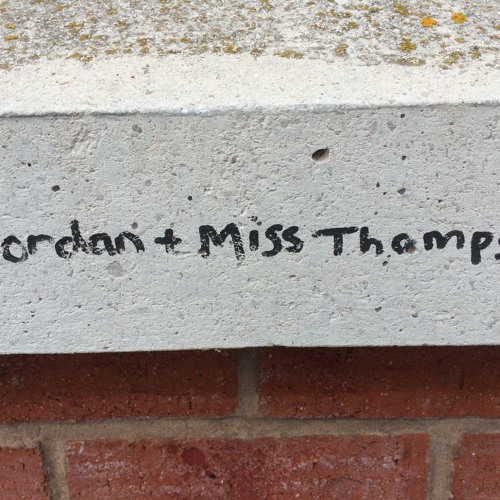 ordan + Miss Thomps